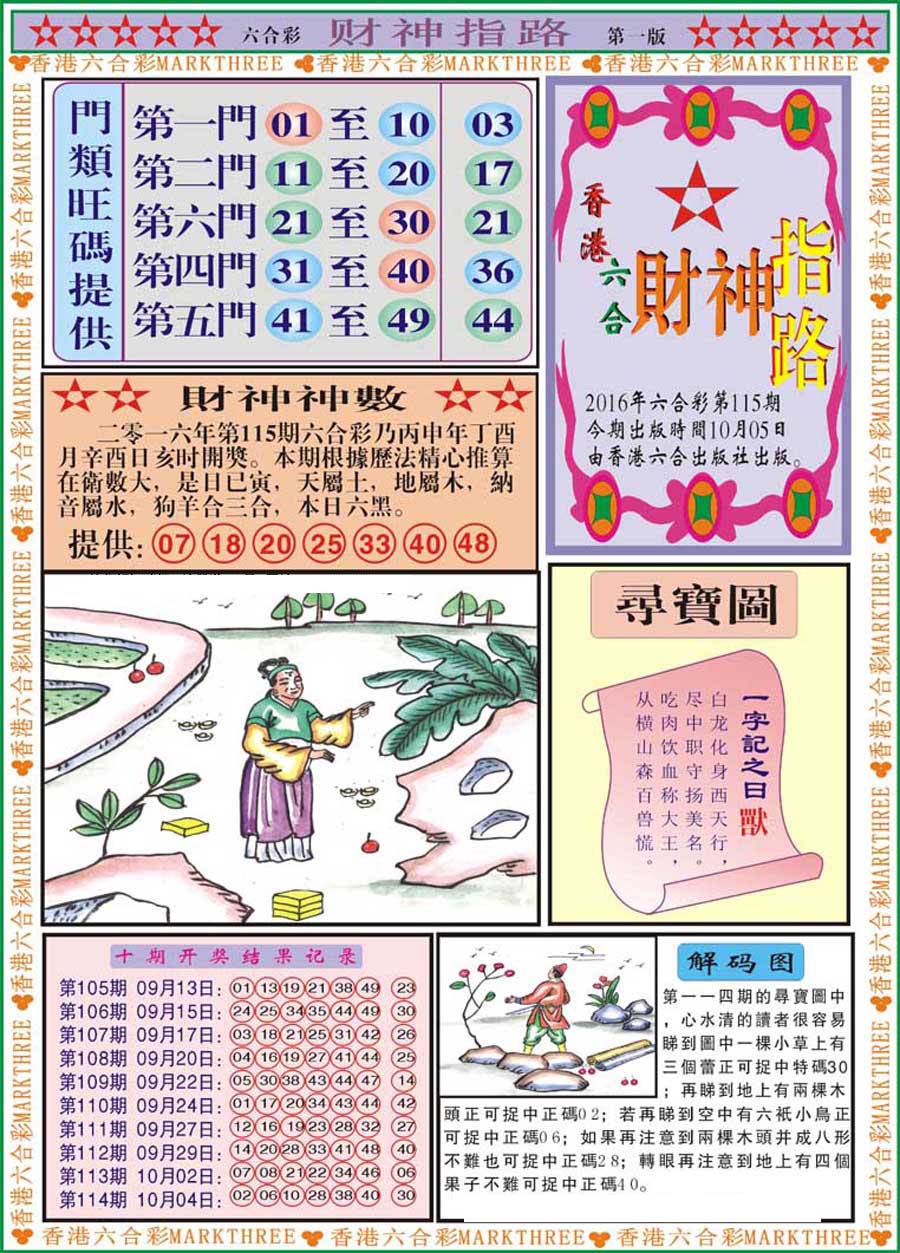 六合彩 财神指路 第一版
香港六合彩MARKTHREE 香港六合彩MARKTHREE 香港六合彩MARKTHREE
門類旺碼提供
第一門 01 至 10 03
第二門 11 至 20 17
第六門 21 至 30 21
第四門 31 至 40 36
第五門 41 至 49 44
香港六合
財神指路
2016年六合彩第115期
今期出版時間10月05日
由香港六合出版社出版。
財神神數
二零一六年第115期六合彩乃丙申年丁酉
月辛酉日亥时開獎。本期根據歷法精心推算
在衛數大，是日巳寅，天屬土，地屬木，納
音屬水，狗羊合三合，本日六黑。
提供: 07 18 20 25 33 40 48
尋寶圖
一字記之曰 獸
白龙化身西天行，
尽中职守扬美名。
吃肉饮血称大王，
从横山森百兽慌。
十期开奖结果记录
第105期 09月13日: 01 13 19 21 38 49 23
第106期 09月15日: 24 25 34 35 44 49 30
第107期 09月17日: 03 18 21 25 31 42 26
第108期 09月20日: 04 16 19 27 41 44 25
第109期 09月22日: 05 30 38 43 44 47 14
第110期 09月24日: 01 17 20 34 43 44 42
第111期 09月27日: 12 16 19 23 28 32 27
第112期 09月29日: 14 20 28 33 41 48 40
第113期 10月02日: 07 08 21 22 34 46 06
第114期 10月04日: 02 06 10 28 38 40 30
解码图
第一一四期的尋寶圖中
，心水清的讀者很容易
睇到圖中一棵小草上有
三個蕾正可捉中特碼30
；再睇到地上有兩棵木
頭正可捉中正碼02；若再睇到空中有六衹小鳥正
可捉中正碼06；如果再注意到兩棵木頭并成八形
不難也可捉中正碼28；轉眼再注意到地上有四個
果子不難可捉中正碼40。
香港六合彩MARKTHREE 香港六合彩MARKTHREE 香港六合彩MARKTHREE
香港六合彩MARKTHREE 香港六合彩MARKTHREE 香港六合彩MARKTHREE 香港六合彩MARKTHREE 香港六合彩MARKTHREE
香港六合彩MARKTHREE 香港六合彩MARKTHREE 香港六合彩MARKTHREE 香港六合彩MARKTHREE 香港六合彩MARKTHREE